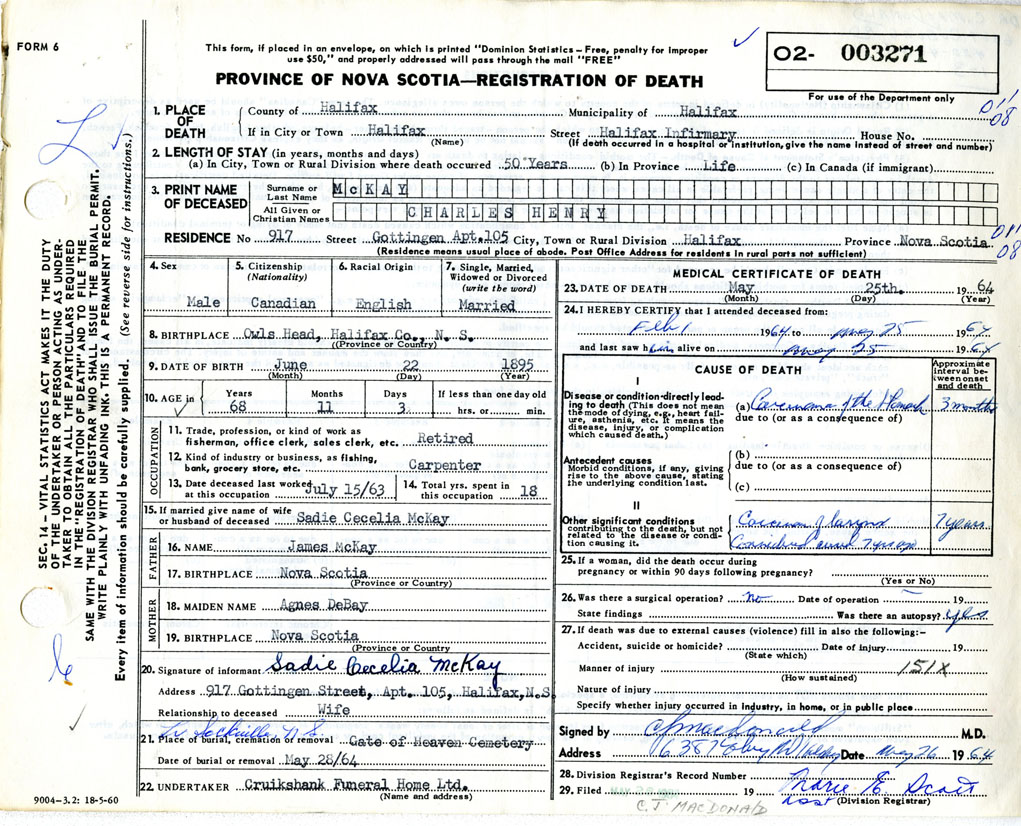 FORM 6
This form, if placed in an envelope, on which is printed "Dominion Statistics – Free, penalty for improper
use $50," and properly addressed will pass through the mail "FREE"
PROVINCE OF NOVA SCOTIA—REGISTRATION OF DEATH
O2- 003271
For use of the Department only
SEC. 14 – VITAL STATISTICS ACT MAKES IT THE DUTY
OF THE UNDERTAKER OR PERSON ACTING AS UNDER-
TAKER TO OBTAIN ALL THE PARTICULARS REQUIRED
IN THE "REGISTRATION OF DEATH" AND TO FILE THE
SAME WITH THE DIVISION REGISTRAR WHO SHALL ISSUE THE BURIAL PERMIT.
WRITE PLAINLY WITH UNFADING INK. THIS IS A PERMANENT RECORD.
Every item of information should be carefully supplied. (See reverse side for instructions.)
1. PLACE OF DEATH
County of Halifax Municipality of Halifax
If in City or Town Halifax Street Halifax Infirmary House No.
(Name) (If death occurred in a hospital or institution, give the name instead of street and number)
2. LENGTH OF STAY (in years, months and days)
(a) In City, Town or Rural Division where death occurred 50 Years (b) In Province Life (c) In Canada (if immigrant)
3. PRINT NAME OF DECEASED
Surname or Last Name McKAY
All Given or Christian Names CHARLES HENRY
RESIDENCE No 917 Street Gottingen Apt.105 City, Town or Rural Division Halifax Province Nova Scotia
(Residence means usual place of abode. Post Office Address for residents in rural parts not sufficient)
4. Sex Male
5. Citizenship (Nationality) Canadian
6. Racial Origin English
7. Single, Married, Widowed or Divorced (write the word) Married
8. BIRTHPLACE Owls Head, Halifax Co., N. S.
(Province or Country)
9. DATE OF BIRTH June 22 1895
(Month) (Day) (Year)
10. AGE in Years 68 Months 11 Days 3 If less than one day old hrs. or min.
OCCUPATION
11. Trade, profession, or kind of work as
fisherman, office clerk, sales clerk, etc. Retired
12. Kind of industry or business, as fishing,
bank, grocery store, etc. Carpenter
13. Date deceased last worked at this occupation July 15/63
14. Total yrs. spent in this occupation 18
15. If married give name of wife
or husband of deceased Sadie Cecelia McKay
FATHER
16. NAME James McKay
17. BIRTHPLACE Nova Scotia
(Province or Country)
MOTHER
18. MAIDEN NAME Agnes DeBay
19. BIRTHPLACE Nova Scotia
(Province or Country)
20. Signature of informant Sadie Cecelia McKay
Address 917 Gottingen Street, Apt. 105, Halifax, N.S.
Relationship to deceased Wife
Lr Sackville, N S.
21. Place of burial, cremation or removal Gate of Heaven Cemetery
Date of burial or removal May 28/64
22. UNDERTAKER Cruikshank Funeral Home Ltd.
(Name and address)
9004–3.2: 18-5-60
MEDICAL CERTIFICATE OF DEATH
23. DATE OF DEATH May 25th. 1964
(Month) (Day) (Year)
24. I HEREBY CERTIFY that I attended deceased from:
Feb 1 1964 to May 25 1964
and last saw him alive on May 25 1964
CAUSE OF DEATH
Approximate interval between onset and death
I
Disease or condition directly leading to death (This does not mean the mode of dying, eg., heart failure, asthenia, etc. It means the disease, injury, or complication which caused death.)
(a) Carcinoma of the Stomach 3 months
due to (or as a consequence of)
Antecedent causes
Morbid conditions, if any, giving rise to the above cause, stating the underlying condition last.
(b)
due to (or as a consequence of)
(c)
II
Other significant conditions contributing to the death, but not related to the disease or condition causing it.
Carcinoma of larynx 7 years
Considered cured 7 yrs ago
25. If a woman, did the death occur during
pregnancy or within 90 days following pregnancy?
(Yes or No)
26. Was there a surgical operation? no Date of operation – 19
State findings Was there an autopsy? yes
27. If death was due to external causes (violence) fill in also the following:–
Accident, suicide or homicide? Date of injury 19
(State which)
Manner of injury 151X
(How sustained)
Nature of injury
Specify whether injury occurred in industry, in home, or in public place
Signed by CJ MacDonald M.D.
Address Date May 26 1964
28. Division Registrar's Record Number
29. Filed 19 Marie E Scott
Asst (Division Registrar)
C. J. MACDONALD